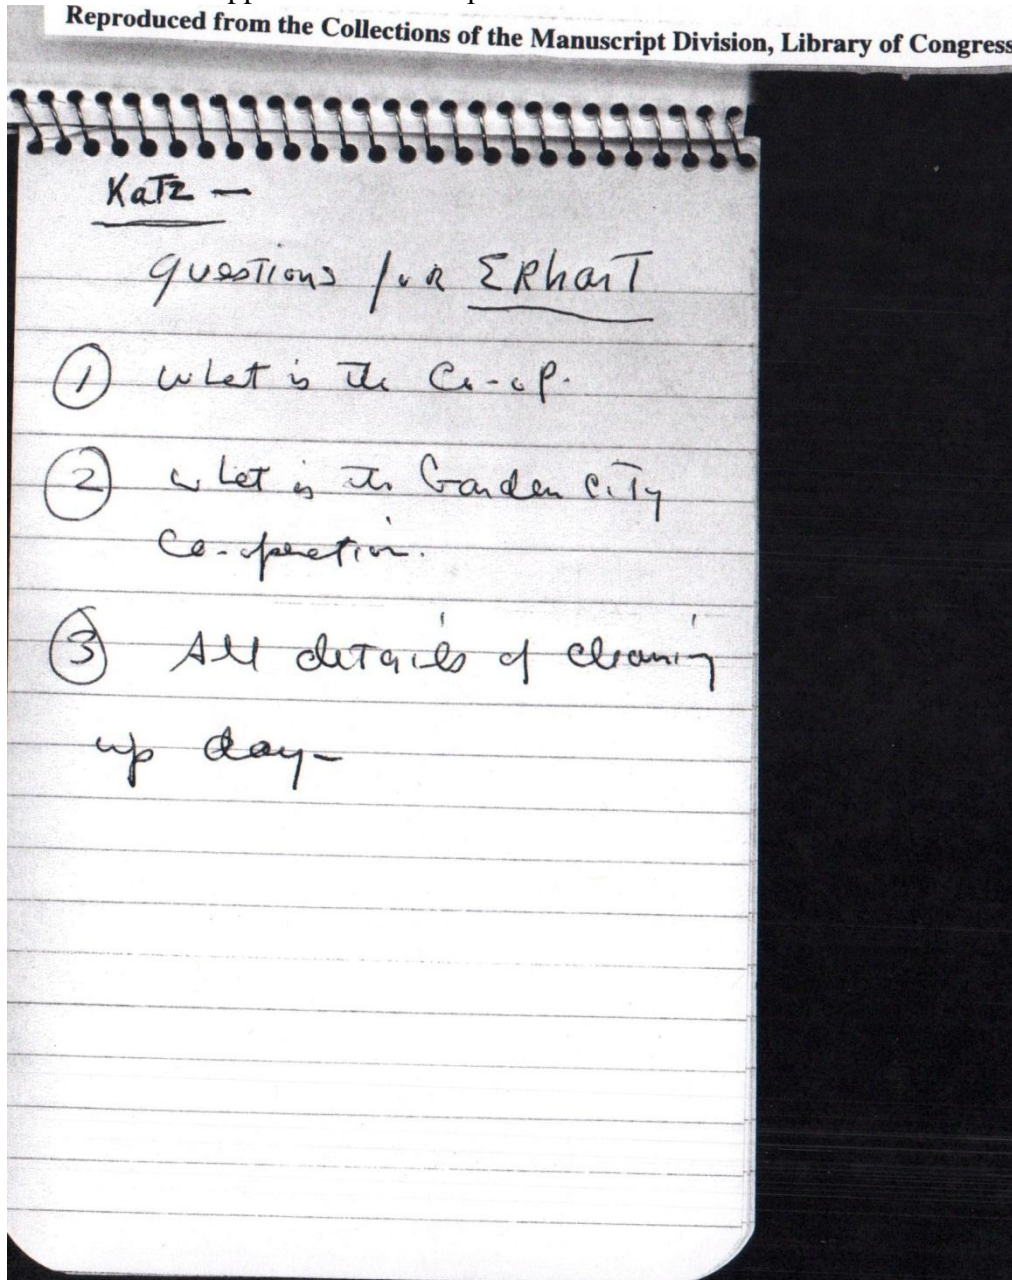 Reproduced from the Collections of the Manuscript Division, Library of Congress
KaTz —
Questions for ERharT
① what is the Co-op.
② what is the Garden CiTy
Co-operation.
③ All deTails of cleaning
up day-